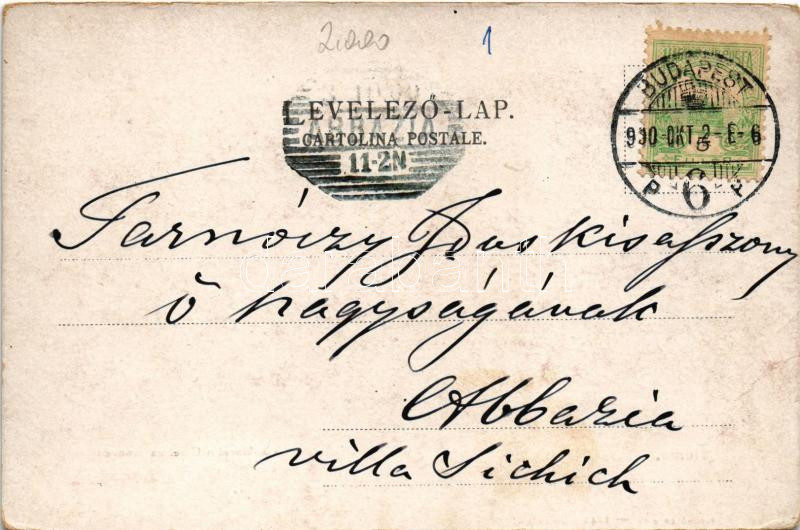 2,000
1
LEVELEZŐ-LAP.
CARTOLINA POSTALE.
ABBAZIA
11-2N
BUDAPEST
900 OKT 2 - E - 6
6
Tarnóczy Idus kisasszony
ő nagyságának
Abbazia
villa Sichich
darabanth